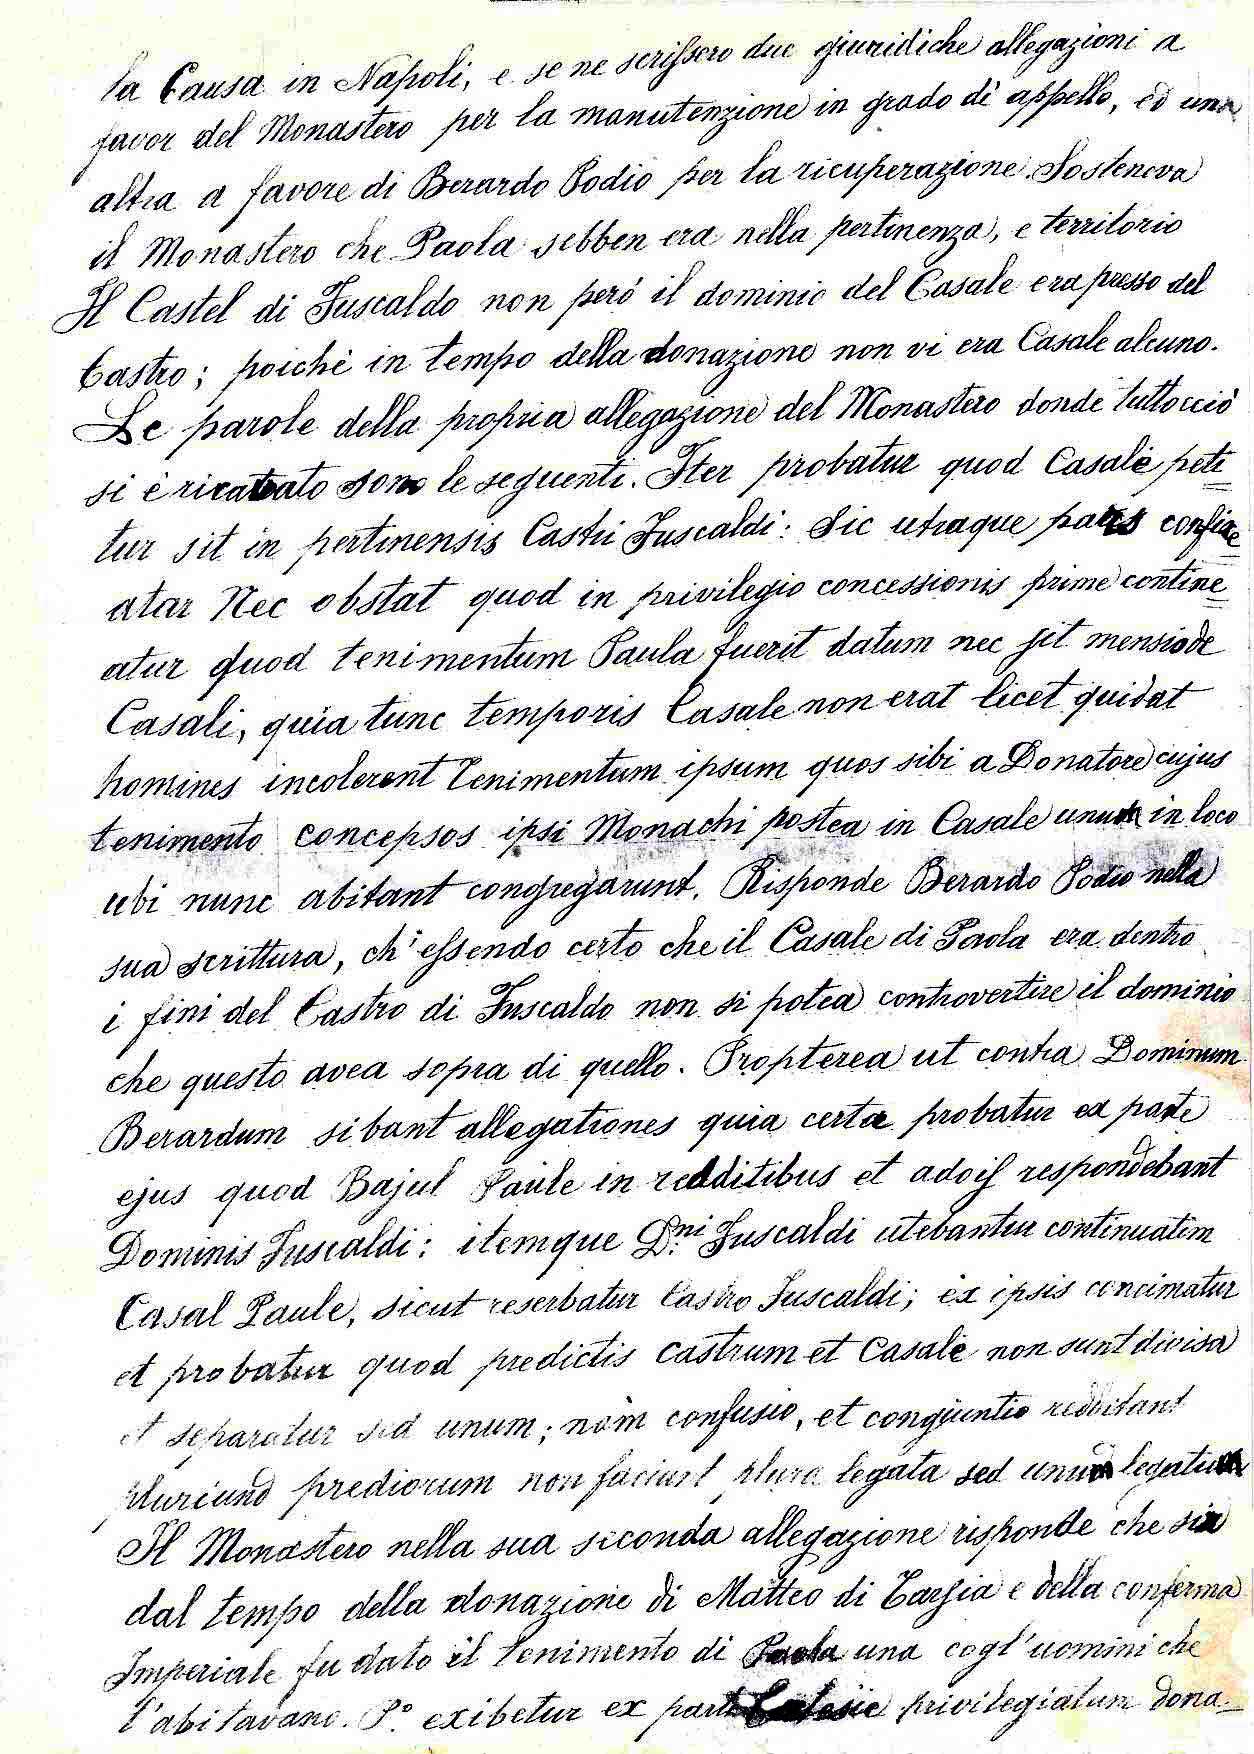 la Causa in Napoli, e se ne scrissero due giuridiche allegazioni a
favor del Monastero per la manutenzione in grado di appello, ed una
altra a favore di Berardo Podio per la ricuperazione. Sosteneva
il Monastero che Paola sebben era nella pertinenza, e territorio
Il Castel di Fuscaldo non però il dominio del Casale era presso del
Castro; poichè in tempo della donazione non vi era Casale alcuno.
Le parole della propria allegazione del Monastero donde tuttocciò
si è ricavato sono le seguenti. Iter probatur quod Casale peti
tur sit in pertinensis Castri Fuscaldi: Sic utraque pars confite
atar Nec obstat quod in privilegio concessionis prime contine
atur quod tenimentum Paula fuerit datum nec fit mensiode
Casali, quia tunc temporis Casale non erat licet quidat
homines incolerent tenimentum ipsum quos sibi a Donatore cujus
tenimento concepsos ipsi Monachi postea in Casale unum in loco
ubi nunc abitant congregarunt. Risponde Berardo Podio nella
sua scrittura, ch'essendo certo che il Casale di Paola era dentro
i fini del Castro di Fuscaldo non si potea controvertire il dominio
che questo avea sopra di quello. Propterea ut contra Dominum
Berardum sibant allegationes quia certa probatur ex parte
ejus quod Bajul Paule in redditibus et adois respondebant
Dominis Fuscaldi: itemque D.ni Fuscaldi utebantur continuatim
Casal Paule, sicut reserbatur Castro Fuscaldi; ex ipsis concimatur
et probatur quod predictis castrum et Casale non sunt divisa
et separatur sed unum; nam confusio, et congiuntio redditant
pluriund prediorum non faciunt plura legata sed unum legatum
Il Monastero nella sua seconda allegazione risponde che sin
dal tempo della donazione di Matteo di Tarsia e della conferma
Imperiale fu dato il tenimento di Paola una cogl'uomini che
l'abitavano. P.o exibetur ex parte Eclesie privilegiatum dona-